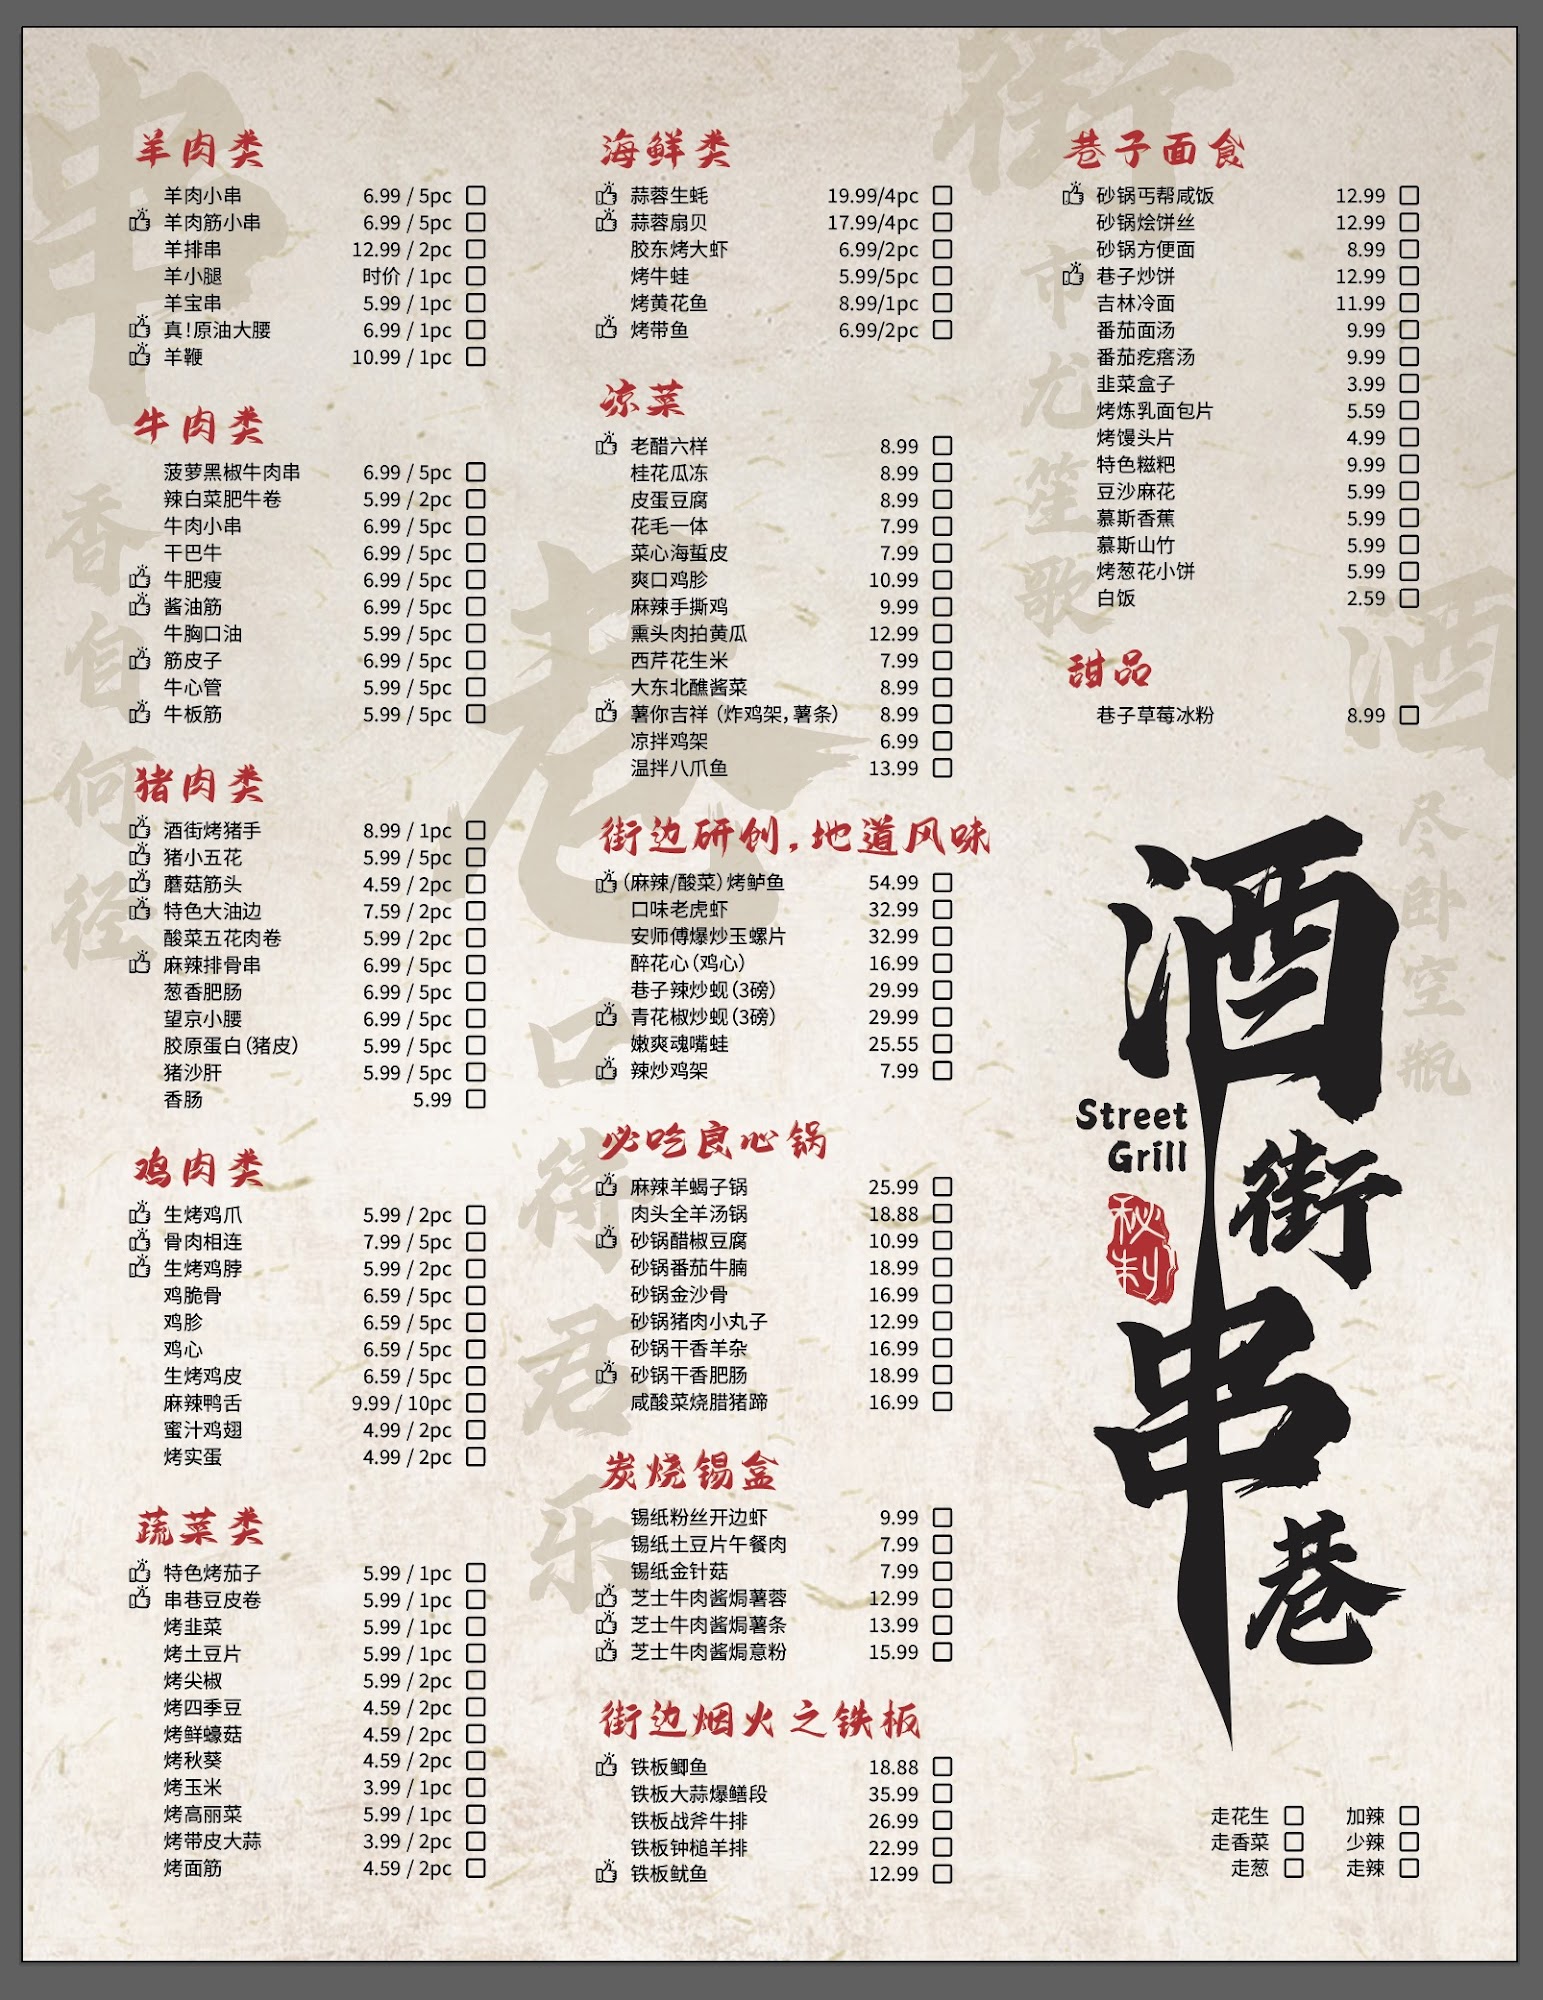 羊肉类
羊肉小串 6.99 / 5pc
羊肉筋小串 6.99 / 5pc
羊排串 12.99 / 2pc
羊小腿 时价 / 1pc
羊宝串 5.99 / 1pc
真!原油大腰 6.99 / 1pc
羊鞭 10.99 / 1pc
牛肉类
菠萝黑椒牛肉串 6.99 / 5pc
辣白菜肥牛卷 5.99 / 2pc
牛肉小串 6.99 / 5pc
干巴牛 6.99 / 5pc
牛肥瘦 6.99 / 5pc
酱油筋 6.99 / 5pc
牛胸口油 5.99 / 5pc
筋皮子 6.99 / 5pc
牛心管 5.99 / 5pc
牛板筋 5.99 / 5pc
猪肉类
酒街烤猪手 8.99 / 1pc
猪小五花 5.99 / 5pc
蘑菇筋头 4.59 / 2pc
特色大油边 7.59 / 2pc
酸菜五花肉卷 5.99 / 2pc
麻辣排骨串 6.99 / 5pc
葱香肥肠 6.99 / 5pc
望京小腰 6.99 / 5pc
胶原蛋白(猪皮) 5.99 / 5pc
猪沙肝 5.99 / 5pc
香肠 5.99
鸡肉类
生烤鸡爪 5.99 / 2pc
骨肉相连 7.99 / 5pc
生烤鸡脖 5.99 / 2pc
鸡脆骨 6.59 / 5pc
鸡胗 6.59 / 5pc
鸡心 6.59 / 5pc
生烤鸡皮 6.59 / 5pc
麻辣鸭舌 9.99 / 10pc
蜜汁鸡翅 4.99 / 2pc
烤实蛋 4.99 / 2pc
蔬菜类
特色烤茄子 5.99 / 1pc
串巷豆皮卷 5.99 / 1pc
烤韭菜 5.99 / 1pc
烤土豆片 5.99 / 1pc
烤尖椒 5.99 / 2pc
烤四季豆 4.59 / 2pc
烤鲜蠔菇 4.59 / 2pc
烤秋葵 4.59 / 2pc
烤玉米 3.99 / 1pc
烤高丽菜 5.99 / 1pc
烤带皮大蒜 3.99 / 2pc
烤面筋 4.59 / 2pc
海鲜类
蒜蓉生蚝 19.99/4pc
蒜蓉扇贝 17.99/4pc
胶东烤大虾 6.99/2pc
烤牛蛙 5.99/5pc
烤黄花鱼 8.99/1pc
烤带鱼 6.99/2pc
凉菜
老醋六样 8.99
桂花瓜冻 8.99
皮蛋豆腐 8.99
花毛一体 7.99
菜心海蜇皮 7.99
爽口鸡胗 10.99
麻辣手撕鸡 9.99
熏头肉拍黄瓜 12.99
西芹花生米 7.99
大东北蘸酱菜 8.99
薯你吉祥(炸鸡架,薯条) 8.99
凉拌鸡架 6.99
温拌八爪鱼 13.99
街边研创,地道风味
(麻辣/酸菜)烤鲈鱼 54.99
口味老虎虾 32.99
安师傅爆炒玉螺片 32.99
醉花心(鸡心) 16.99
巷子辣炒蚬(3磅) 29.99
青花椒炒蚬(3磅) 29.99
嫩爽魂嘴蛙 25.55
辣炒鸡架 7.99
必吃良心锅
麻辣羊蝎子锅 25.99
肉头全羊汤锅 18.88
砂锅醋椒豆腐 10.99
砂锅番茄牛腩 18.99
砂锅金沙骨 16.99
砂锅猪肉小丸子 12.99
砂锅干香羊杂 16.99
砂锅干香肥肠 18.99
咸酸菜烧腊猪蹄 16.99
炭烧锡盒
锡纸粉丝开边虾 9.99
锡纸土豆片午餐肉 7.99
锡纸金针菇 7.99
芝士牛肉酱焗薯蓉 12.99
芝士牛肉酱焗薯条 13.99
芝士牛肉酱焗意粉 15.99
街边烟火之铁板
铁板鲫鱼 18.88
铁板大蒜爆鳝段 35.99
铁板战斧牛排 26.99
铁板钟槌羊排 22.99
铁板鱿鱼 12.99
巷子面食
砂锅丐帮咸饭 12.99
砂锅烩饼丝 12.99
砂锅方便面 8.99
巷子炒饼 12.99
吉林冷面 11.99
番茄面汤 9.99
番茄疙瘩汤 9.99
韭菜盒子 3.99
烤炼乳面包片 5.59
烤馒头片 4.99
特色糍粑 9.99
豆沙麻花 5.99
慕斯香蕉 5.99
慕斯山竹 5.99
烤葱花小饼 5.99
白饭 2.59
甜品
巷子草莓冰粉 8.99
酒街串巷
Street
Grill
秘制
走花生 加辣
走香菜 少辣
走葱 走辣
串
香自何径
巷
口待君乐
街
市尤笙歌
酒
尽卧空瓶